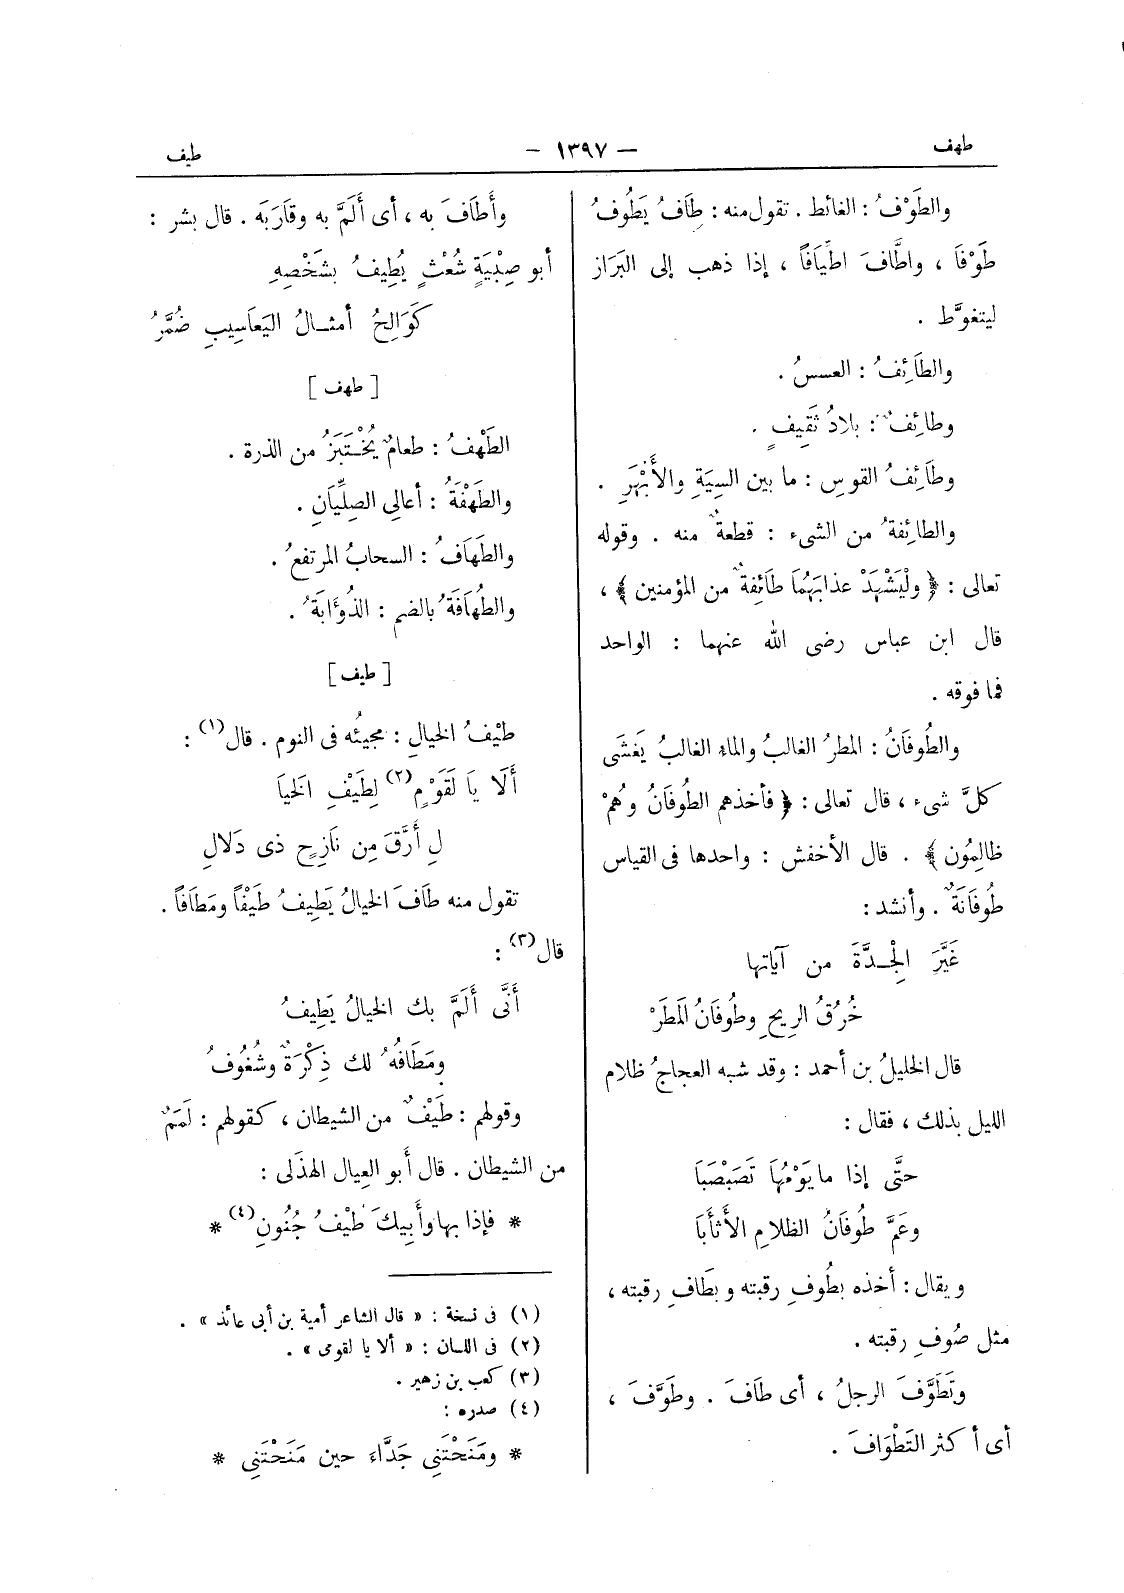 طهف — ١٣٩٧ — طيف
والطَوْفُ : الغائط . تقول منه : طَافُ يَطُوفُ
طَوْفاَ ، واطَّافَ اطِّيَافاً ، إذا ذهب إلى البَرَاز
ليتغوَّط .
والطَائِفُ : العسسُ .
وطائِفٌ : بلادُ ثَقِيفٍ .
وطَائِفُ القوسِ : ما بين السِيَةِ والأَبْهَرِ .
والطائِفةُ من الشىء : قطعةٌ منه . وقوله
تعالى : ﴿ ولْيَشْهَدْ عذابَهُمَا طَائِفةٌ من المؤمنين ﴾ ،
قال ابن عباس رضى الله عنهما : الواحد
فما فوقه .
والطُوفَانُ : المطرُ الغالبُ والماء الغالبُ يَغشَى
كلَّ شىء ، قال تعالى : ﴿ فأخذهم الطُوفَانُ وهُمْ
ظالِمُون ﴾ . قال الأخفش : واحدها فى القياس
طُوفَانَةٌ . وأنشد :
غَيَّرَ الجِدَّةَ من آياتها
خُرُقُ الرِيحِ وطُوفَانُ المَطَرْ
قال الخليلُ بن أحمد : وقد شبه العجاجُ ظلام
الليل بذلك ، فقال :
حتَّى إذا ما يَوْمُهَا تَصَبْصَبَا
وعَمَّ طُوفَانُ الظلامِ الأَثْأَبَا
ويقال : أخذه بطُوفِ رقبته وبطَافِ رقبته ،
مثل صُوفِ رقبته .
وتَطَوَّفَ الرجلُ ، أى طَافَ . وطَوَّفَ ،
أى أكثر التَطْوَافَ .
وأَطَافَ به ، أى أَلَمَّ به وقَارَبَه . قال بشر :
أبو صِبْيَةٍ شُعْثٍ يُطِيفُ بشَخْصِهِ
كَوَالِحُ أمثالُ اليَعَاسِيبِ ضُمَّرُ
[ طهف ]
الطَهْفُ : طعامٌ يُخْتَبَزُ من الذرة .
والطَهْفَةُ : أعالى الصِلِّيَانِ .
والطَهَافُ : السحابُ المرتفعُ .
والطُهَافَةُ بالضم : الذُؤَابَةُ .
[ طيف ]
طيْفُ الخيالِ : مجيئُه فى النوم . قال(١) :
أَلَا يَا لَقَوْمٍ(٢) لِطَيْفِ الخيَا
لِ أَرَّقَ مِن نَازِحٍ ذى دَلَالِ
تقول منه طَافَ الخيالُ يَطِيفُ طَيْفًا ومَطَافاً .
قال(٣) :
أَنَّى أَلَمَّ بك الخيالُ يَطِيفُ
ومَطَافُهُ لك ذِكْرَةٌ وشُغُوفُ
وقولهم : طَيْفٌ من الشيطان ، كقولهم : لَمَمٌ
من الشيطان . قال أبو العِيال الهذَلى :
* فإذا بها وأَبِيكَ طَيْفُ جُنُونِ(٤) *
(١) فى نسخة : « قال الشاعر أمية بن أبى عائذ » .
(٢) فى اللسان : « ألا يا لقومى » .
(٣) كعب بن زهير .
(٤) صدره :
* ومَنَحْتَنِى جَدَّاءَ حين مَنَحْتَنِى *